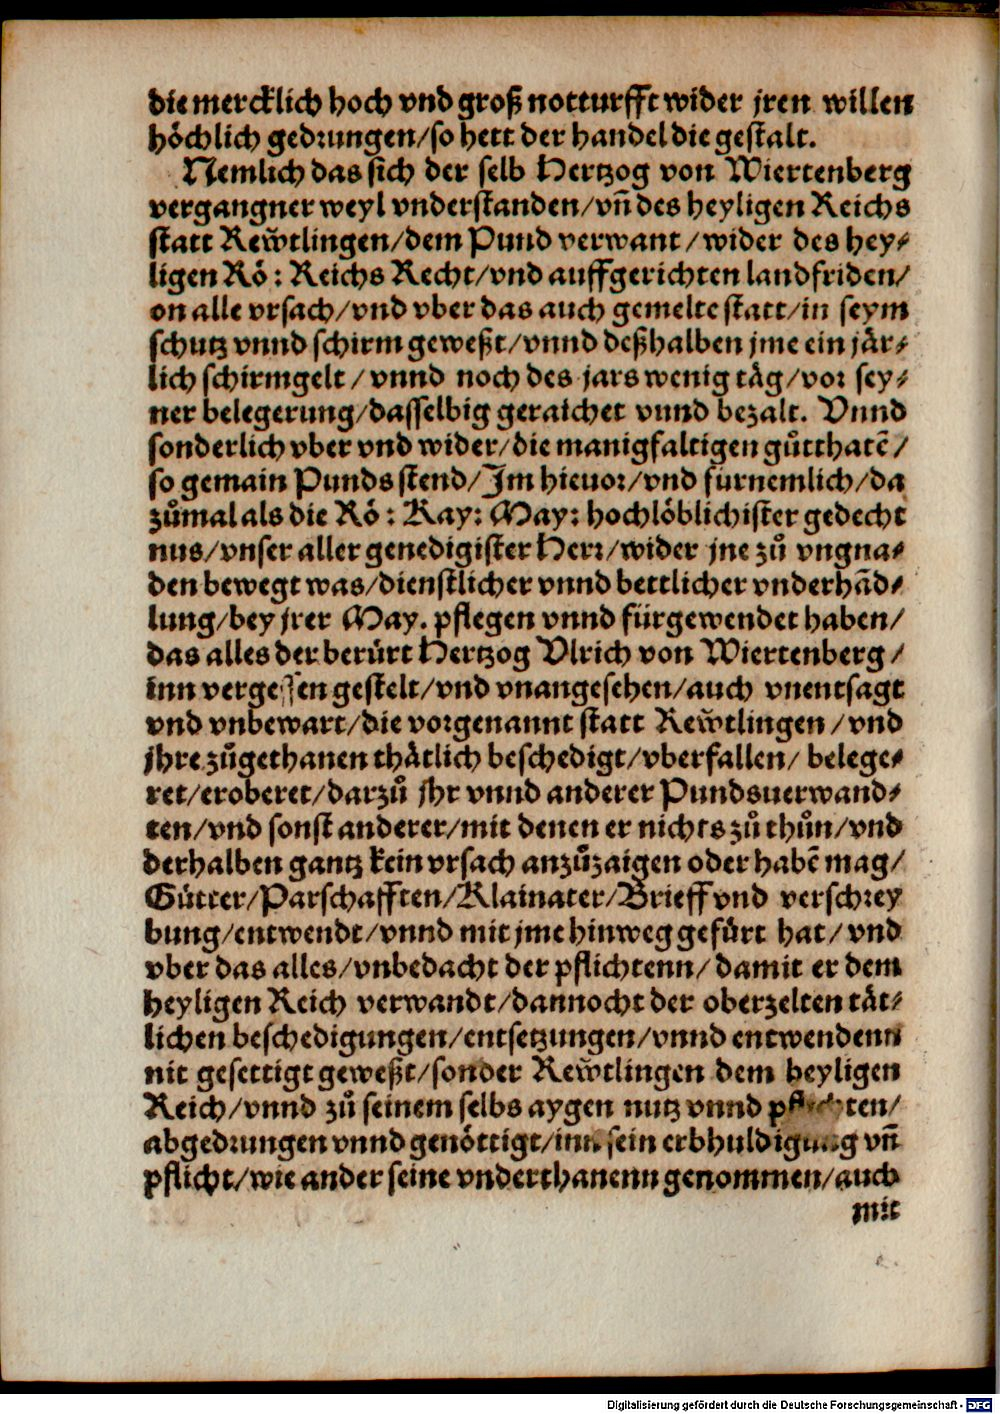 die mercklich hoch vnd groß notturfft wider jren willen
höchlich gedrungen/so hett der handel die gestalt.
Nemlich das sich der selb Hertzog von Wiertenberg
vergangner weyl vnderstanden/vn̄ des heyligen Reichs
statt Rewͦtlingen/dem Pund verwant/wider des hey⸗
ligen Rö: Reichs Recht/vnd auffgerichten landfriden/
on alle vrsach/vnd vber das auch gemelte statt/in seym
schutz vnnd schirm geweßt/vnnd deßhalben jme ein jär⸗
lich schirmgelt/vnnd noch des jars wenig täg/vor sey⸗
ner belegerung/dasselbig geraichet vnnd bezalt. Vnnd
sonderlich vber vnd wider/die manigfaltigen gůtthatē/
so gemain Punds stend/Im hieuor/vnd fürnemlich/da
zůmal als die Rö: Kay: May: hochlöblichister gedecht
nus/vnser aller genedigister Herr/wider jne zů vngna⸗
den bewegt was/dienstlicher vnnd bettlicher vnderhād⸗
lung/bey jrer May. pflegen vnnd fürgewendet haben/
das alles der berürt Hertzog Vlrich von Wiertenberg/
inn vergessen gestelt/vnd vnangesehen/auch vnentsagt
vnd vnbewart/die vorgenannt statt Rewͦtlingen/vnd
jhre zůgethanen thätlich beschedigt/vberfallen/belege⸗
ret/eroberet/darzů jhr vnnd anderer Pundsuerwand⸗
ten/vnd sonst anderer/mit denen er nichts zů thůn/vnd
derhalben gantz kein vrsach anzůzaigen oder habē mag/
Gütter/Parschafften/Klainater/Brieff vnd verschrey
bung/entwendt/vnnd mit jme hinweg gefürt hat/vnd
vber das alles/vnbedacht der pflichtenn/damit er dem
heyligen Reich verwandt/dannocht der oberzelten tät⸗
lichen beschedigungen/entsetzungen/vnnd entwendenn
nit gesettigt geweßt/sonder Rewͦtlingen dem heyligen
Reich/vnnd zů seinem selbs aygen nutz vnnd pflichten/
abgedrungen vnnd genöttigt/inn sein erbhuldigung vn̄
pflicht/wie ander seine vnderthanenn genommen/auch
mit
Digitalisierung gefördert durch die Deutsche Forschungsgemeinschaft - DFG